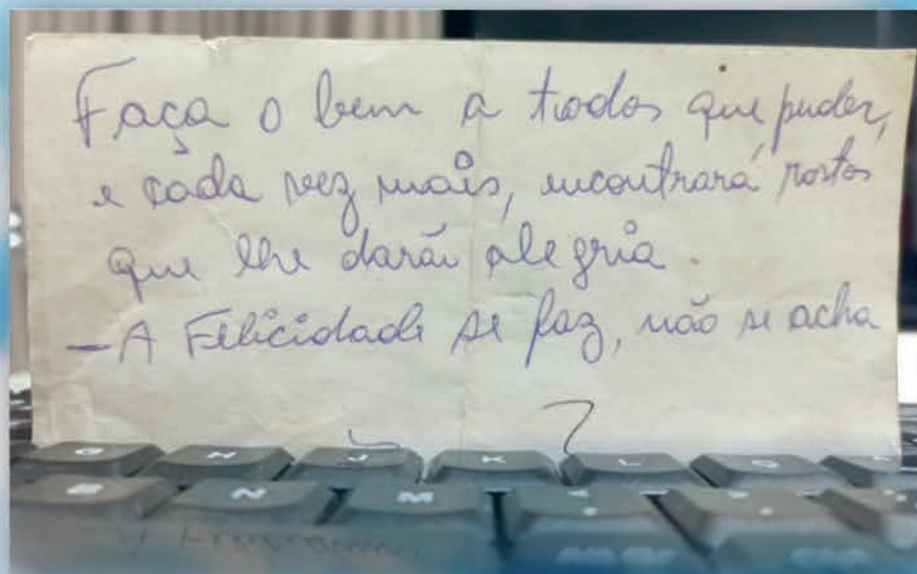 Faça o bem a todos que puder,
e cada vez mais, encontrará rostos
que lhe darão alegria.
- A Felicidade se faz, não se acha
G H J K L Ç
B N M